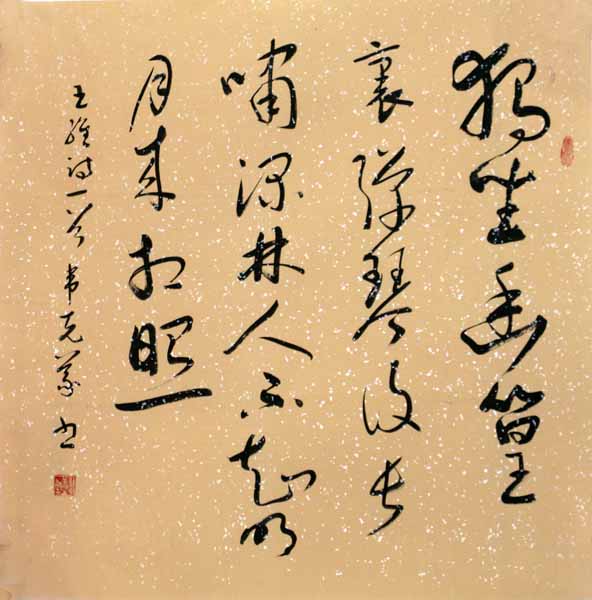 独坐幽篁
裏弹琴復长
啸深林人不知明
月来相照
王维诗一首 韦克义书